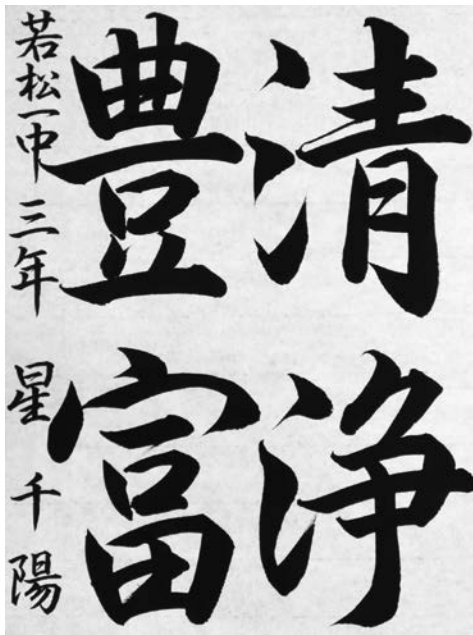 清浄
豊富
若松一中 三年 星 千陽